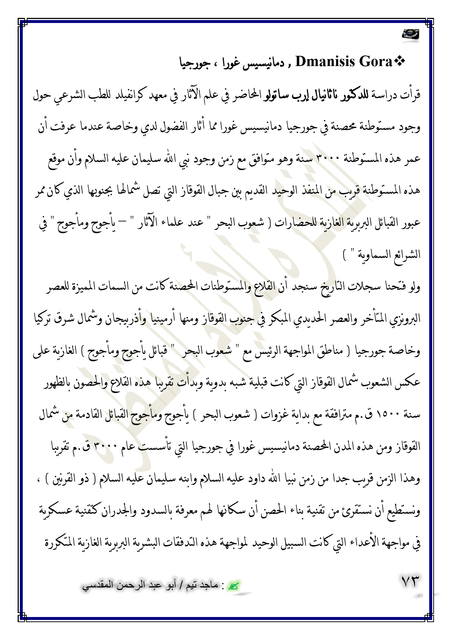 ❖Dmanisis Gora , دمانيسيس غورا ، جورجيا
قرأت دراسة للدكتور ناثانيال إرب ساتولو المحاضر في علم الآثار في معهد كرانفيلد للطب الشرعي حول
وجود مستوطنة محصنة في جورجيا دمانيسيس غورا مما أثار الفضول لدي وخاصة عندما عرفت أن
عمر هذه المستوطنة ٣٠٠٠ سنة وهو متوافق مع زمن وجود نبي الله سليمان عليه السلام وأن موقع
هذه المستوطنة قريب من المنفذ الوحيد القديم بين جبال القوقاز التي تصل شمالها بجنوبها الذي كان ممر
عبور القبائل البربرية الغازية للحضارات ( شعوب البحر " عند علماء الآثار " – يأجوج ومأجوج " في
الشرائع السماوية " )
ولو فتحنا سجلات التاريخ سنجد أن القلاع والمستوطنات المحصنة كانت من السمات المميزة للعصر
البرونزي المتأخر والعصر الحديدي المبكر في جنوب القوقاز ومنها أرمينيا وأذربيجان وشمال شرق تركيا
وخاصة جورجيا ( مناطق المواجهة الرئيس مع " شعوب البحر " قبائل يأجوج ومأجوج ) الغازية على
عكس الشعوب شمال القوقاز التي كانت قبلية شبه بدوية وبدأت تقريبا هذه القلاع والحصون بالظهور
سنة ١٥٠٠ ق.م مترافقة مع بداية غزوات ( شعوب البحر ) يأجوج ومأجوج القبائل القادمة من شمال
القوقاز ومن هذه المدن المحصنة دمانيسيس غورا في جورجيا التي تأسست عام ٣٠٠٠ ق.م تقريبا
وهذا الزمن قريب جدا من زمن نبيا الله داود عليه السلام وابنه سليمان عليه السلام ( ذو القرنين ) ،
ونستطيع أن نستقرئ من تقنية بناء الحصن أن سكانها لهم معرفة بالسدود والجدران كتقنية عسكرية
في مواجهة الأعداء التي كانت السبيل الوحيد لمواجهة هذه التدفقات البشرية البربرية الغازية المتكررة
٧٣
: ماجد تيم / أبو عبد الرحمن المقدسي